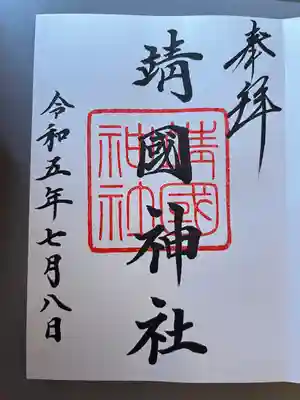 奉拝
靖國神社
靖國神社
令和五年七月八日